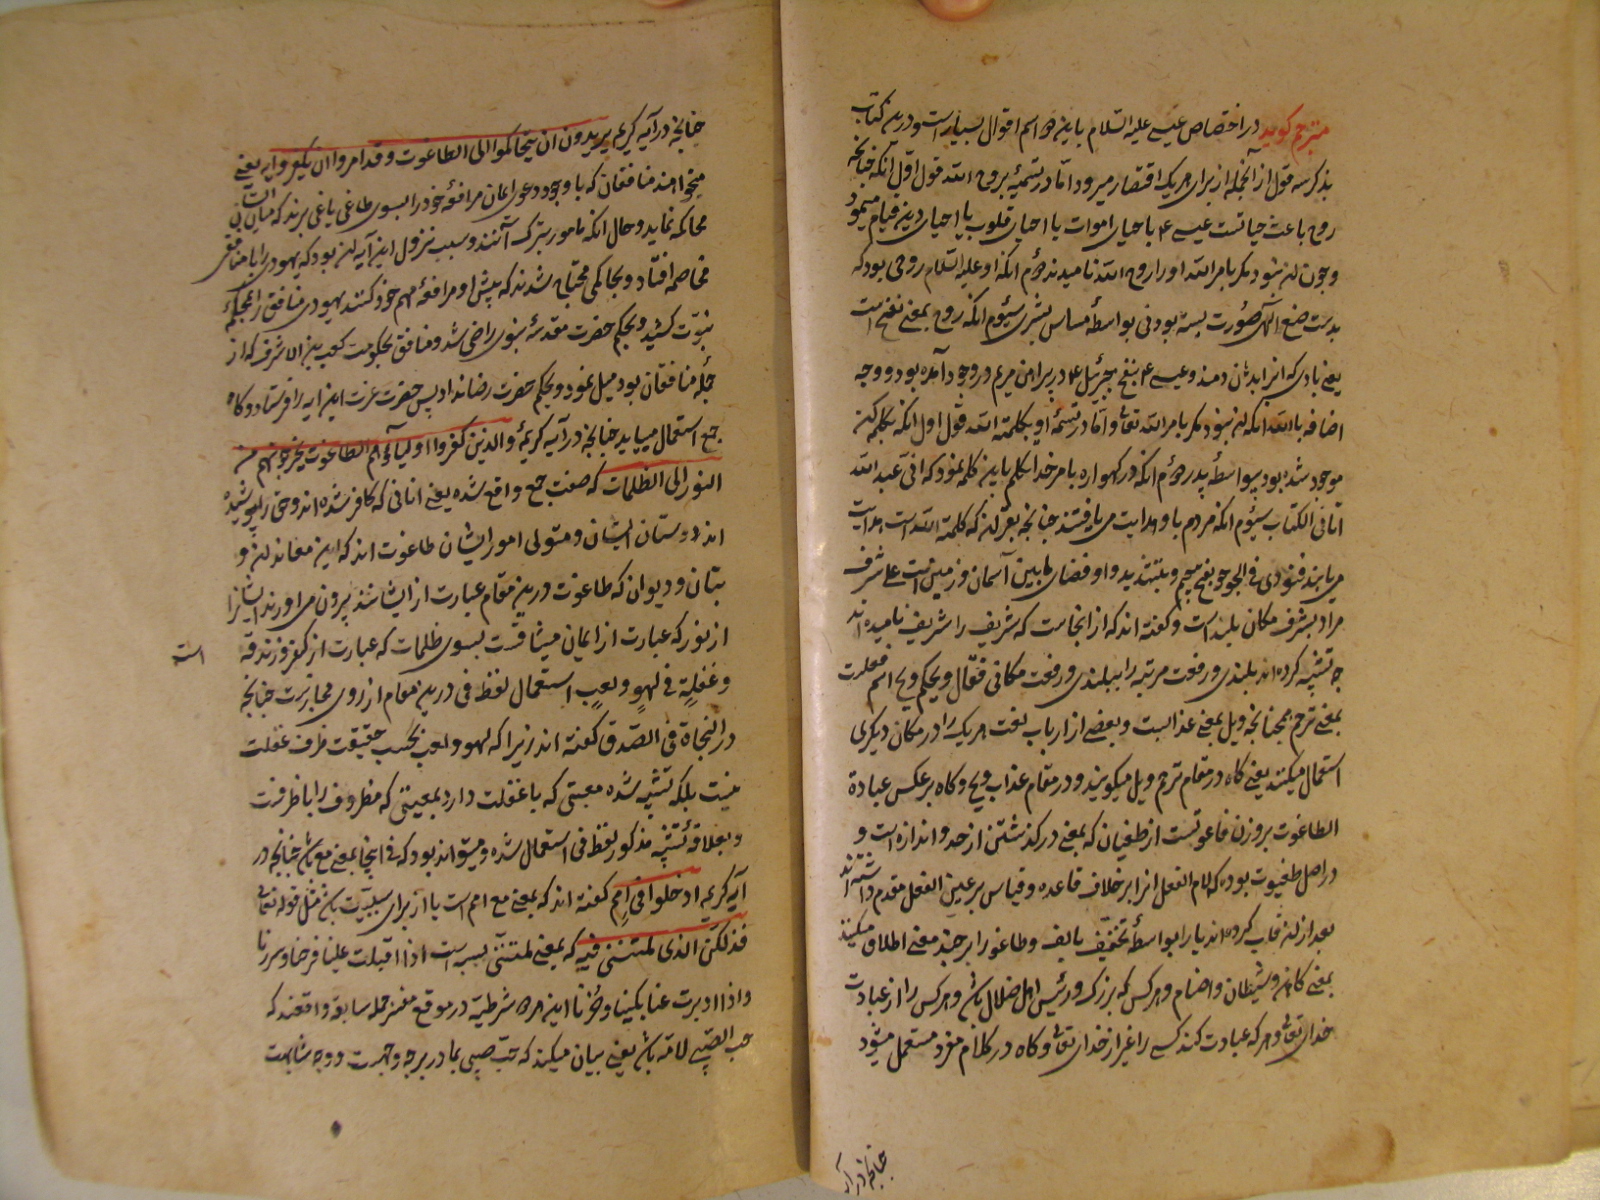 مترجم کوید در اختصاص عیسے علیه السّلام باین دو اسم اقوال بسیار است و درین کتاب
بذکر سه قول از آنجمله از برای هریک اقتصار میرود امّا در تسمیهٔ بروح الله قول اوّل آنکه چنانچه
روح باعث حیاتست عیسے ۴ باحیای اموات یا احیای قلوب یا احیای دین قیام مینمود
و چون این نبود مکر بامر الله او را روح الله نامیدند دوّم آنکه او علیه السّلام روحی بود که
بدست صنع الهی صورت بسته بود نی بواسطهٔ مساس بشری سیّوم آنکه روح بمعنے نفخ است
یعنے بادی که از ابدهان دمند و عیسے ۴ بنفخ جبرئیل ۴ در پیراهن مریم در وجود آمده بود و وجه
اضافه بالله آنکه این نبود مکر بامر الله تعالی و امّا در تسمیهٔ او بکلمة الله قول اول آنکه بکلمه کن
موجود شده بود بیواسطهٔ پدر دوّم آنکه در کهواره بامر خدا تکلم باین کلمه نمود که انی عبد الله
اتانی الکتاب سیّوم آنکه مردم باو هدایت می یافتند چنانچه بقرآن که کلمة الله است هدایت
می یابند فنودی فی الجو جو بفتح جیم و بتشدید واو فضای مابین آسمان و زمین است علے شرف
مراد بشرف مکان بلند است و کفته اند که از انجاست که شریف را شریف نامیده اند
چه تشبیه کرده اند بلندی و رفعت مرتبه را ببلندی و رفعت مکانی فقال ویحکم ویح اسم فعلست
بمعنے ترحم همچنانچه ویل بمعنے عذابست و بعضے از ارباب لغت هریک را در مکان دیکری
استعمال میکنند یعنے کاه در مقام ترحم ویل میکویند و در مقام عذاب ویح و کاه بر عکس عبادة
الطاغوت بر وزن فاعوتست از طغیان که بمعنے در کذشتن از حد و اندازه است و
در اصل طغیوت بوده که لام الفعل انرا بر خلاف قاعده و قیاس بر عین الفعل مقدم داشته اند
بعد از ان قلب کرده اند یا را بواسطهٔ تخفیف بالف و طاغوت را بر چند معنے اطلاق میکنند
بمعنے کاهن و شیطان و اصنام و هر کس که بزرک و رئیس اهل ضلال باشد و هر کس را از عبادت
خدای تعالی و هر که عبادت کند کسے را غیر از خدای تعالی و کاه در کلام مفرد مستعمل میشود
چنانچه در آیه
چنانچه در آیه کریمه یریدون ان یتحاکموا الی الطاغوت و قد امروا ان یکفروا به یعنے
میخواهند منافقان که با وجود دعوی ایمان مرافعهٔ خود را بسوی طاغی یاغی برند که میان ایشان
محاکمه نماید و حال انکه مامور بترک آنند و سبب نزول این آیه ان بود که یهودی را با منافقی
مخاصمه افتاد و بحاکمی محتاج شدند که پیش او مرافعهٔ مهم خود کنند یهودی منافق را بمحکمهٔ
نبوّت کشید و بحکم حضرت مقدسهٔ نبوی راضی شد و منافق بحکومت کعب بن الاشرف که از
جملهٔ منافقان بود میل نمود و بحکم حضرت رضا نداد پس حضرت عزت این آیه را فرستاد و کاه
جمع استعمال مییابد چنانچه در آیه کریمهٔ والذین کفروا اولیاؤهم الطاغوت یخرجونهم من
النور الی الظلمات که صفت جمع واقع شده یعنے انانی که کافر شده اند و حق را پوشیده
اند دوستان ایشان و متولی امور ایشان طاغوت اند که این معاندان و
بتان و دیوان که طاغوت درین مقام عبارت از ایشانند بیرون می اورند ایشانرا
از نور که عبارت از ایمان میثاقست بسوی ظلمات که عبارت از کفر و زندقه است
و غفلةٍ فی لهوٍ و لعبٍ استعمال لفظ فی درین مقام از روی مجازست چنانچه
در النجاة فی الصّدق کفته اند زیرا که لهو و لعب بحسب حقیقت ظرف غفلت
نیست بلکه تشبیه شده معیتی که با غفلت دارد بمعیتی که مظروف را با ظرفست
و بعلاقهٔ تشبیه مذکور لفظ فی استعمال شده و میتواند بود که فی اینجا بمعنے مع باشد چنانچه در
آیه کریمه ادخلوا فی امم کفته اند که بمعنے مع امم است یا از برای سببیت باشد مثل قوله تعالی
فذلکنّ الذی لمتننی فیه که بمعنے لمتننی بسببه است اذا اقبلت علینا فرحنا و سررنا
و اذا ادبرت عنا بکینا و حزنا این هر دو شرطیه در موقع مفسر جمله سابقه واقعند که
حب الصّبی لامّه باشد یعنے بیان میکند که حبّ صبی بمادر بر چه وجهست و وجه مشابهت